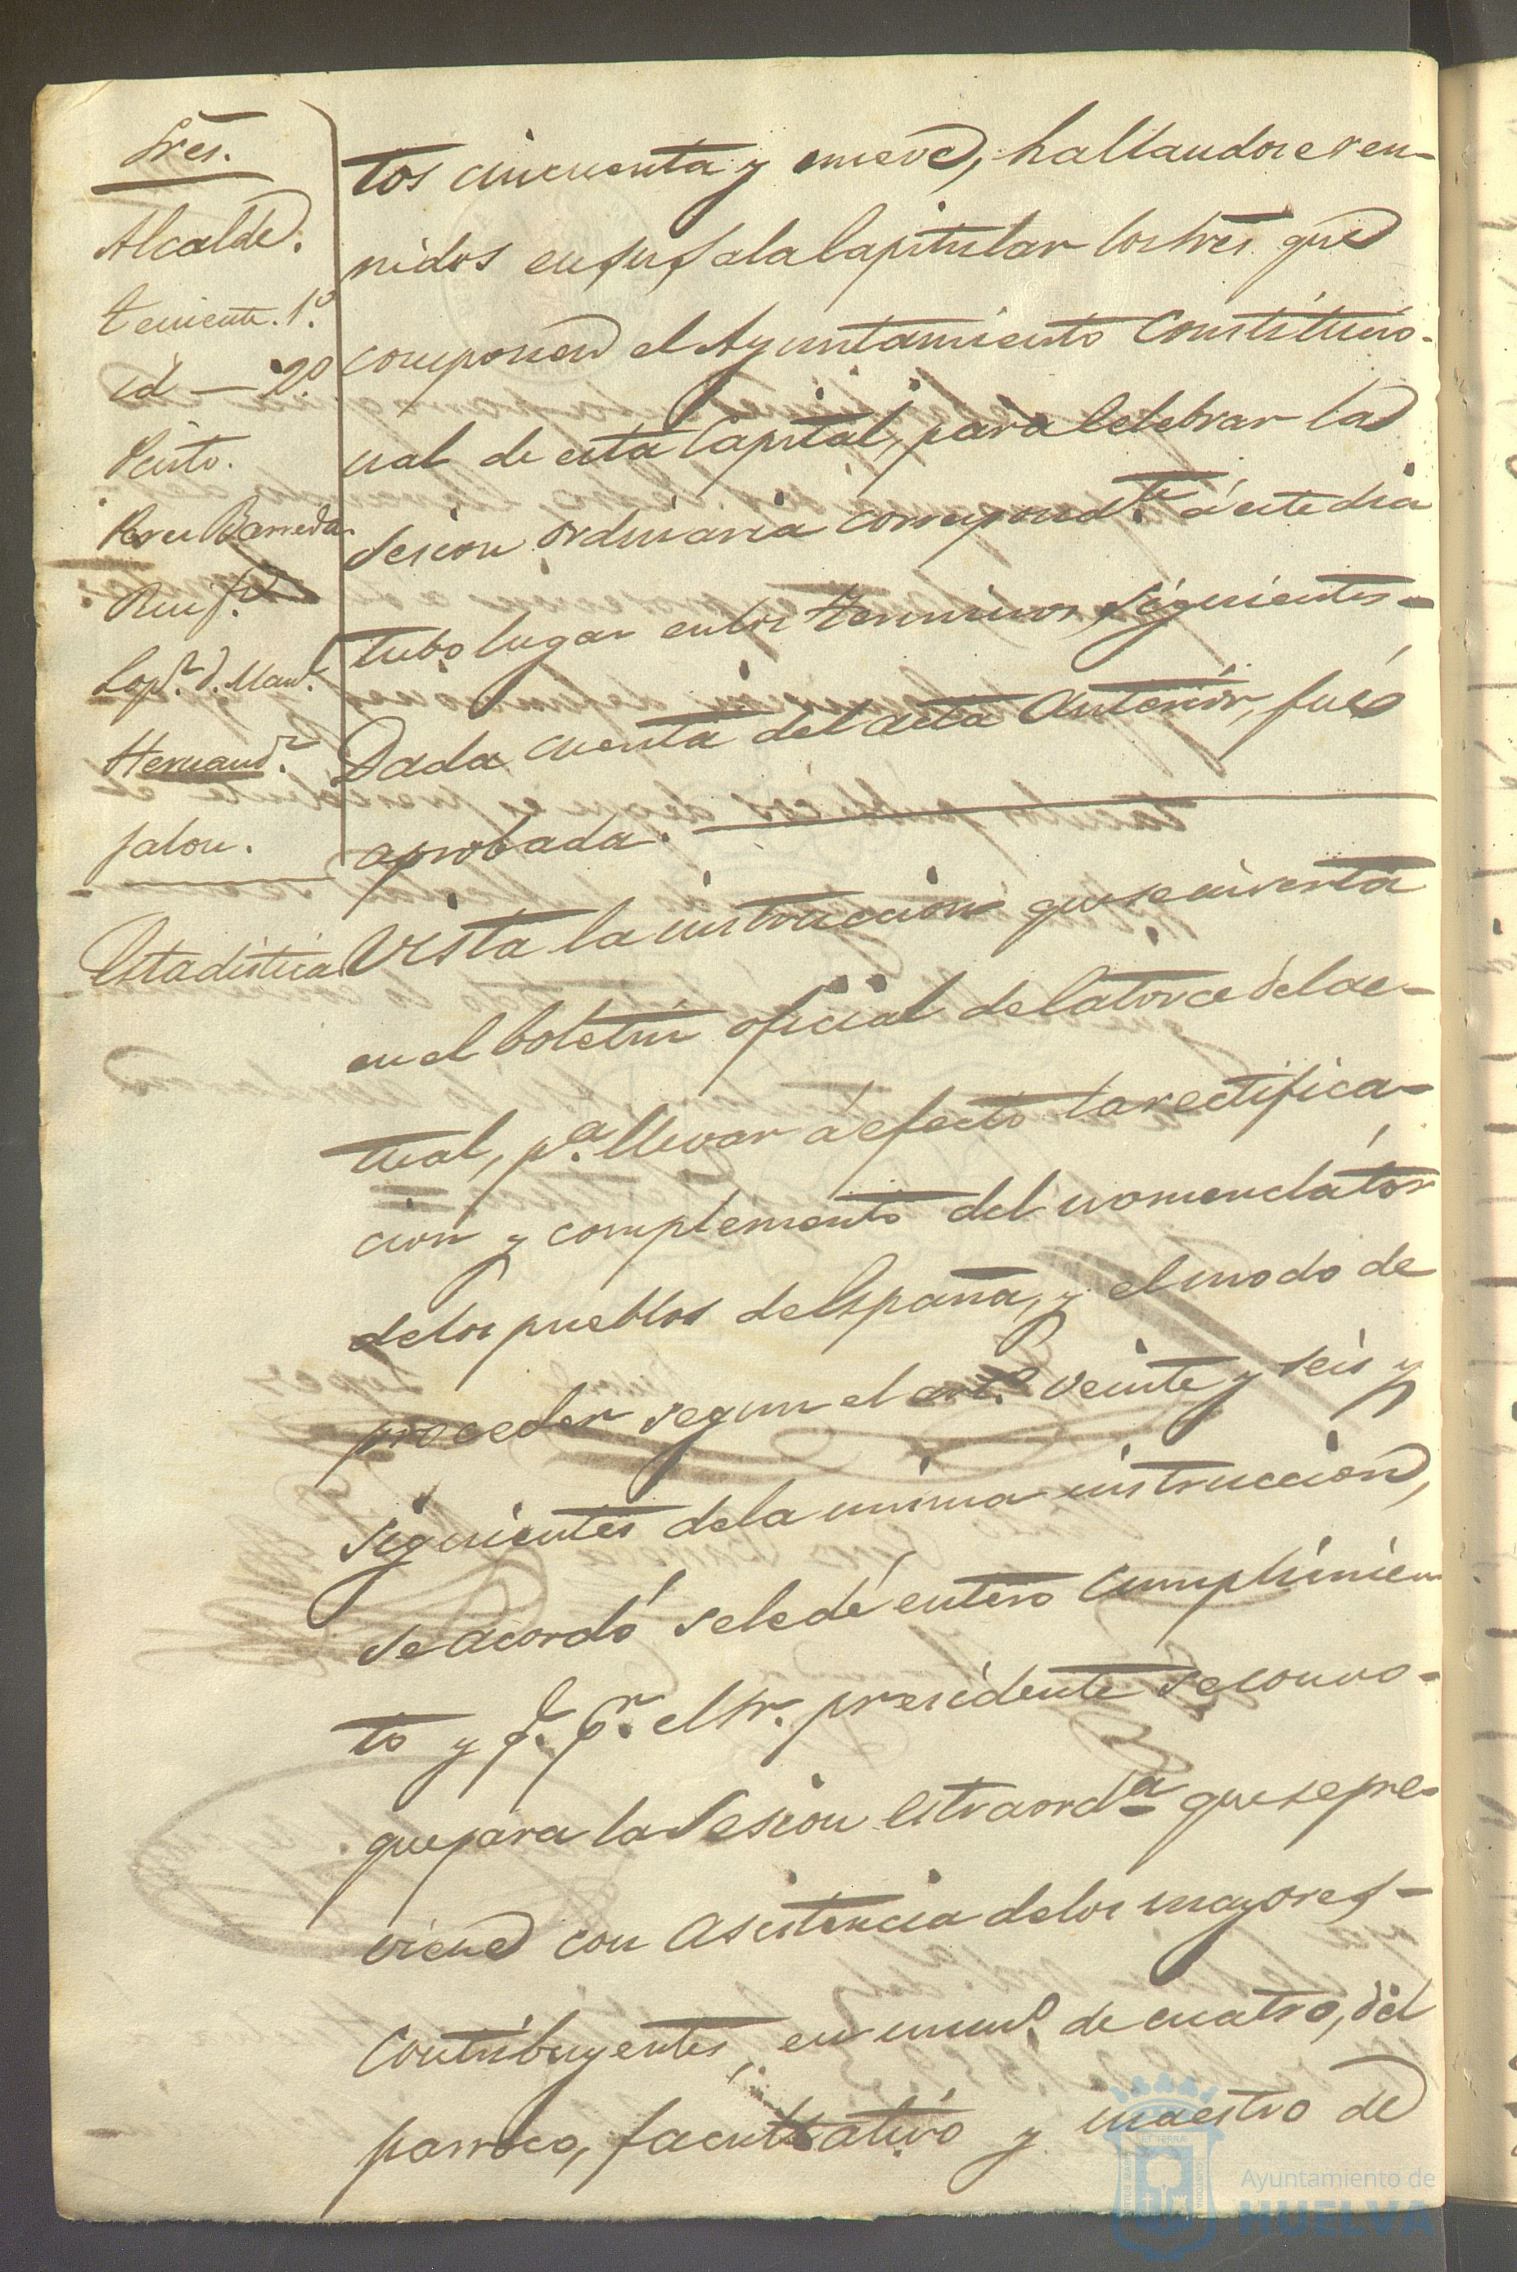 Sres.
Alcalde.
Teniente. 1º.
id — 2º
Pinto.
Perez Barreda.
Ruiz
Lopz. d. Manl.
Hernandz.
Jalon.
tos cincuenta y nueve, hallandose reu-
nidos en su Sala Capitular los Sres. que
componen el Ayuntamiento Constitucio-
nal de esta Capital, para Celebrar la
Sesion ordinaria correspondte. á este dia
tubo lugar en los terminos siguientes-
Dada cuenta del acta Anterior, fué
aprobada.
Estadistica
Vista la instruccion que se inserta
en el boletin oficial del catorce del ac-
tual, pa. llevar á efecto la rectifica-
cion y complemento del nomenclátor
de los pueblos de España, y el modo de
proceder segun el artº. veinte y seis y
siguientes de la misma instruccion,
se acordó se le dé entero cumplimien
to y q. pr. el Sr. presidente se convo-
que para la Sesion estraorda. que se pre-
viene con asistencia de los mayores-
Contribuyentes, en numº. de cuatro, del
parroco, facultativo y maestro de
Ayuntamiento de
HUELVA